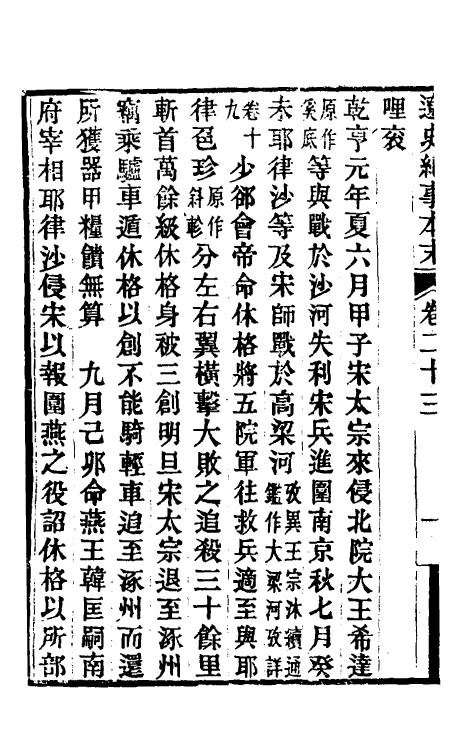 遼史紀事本末　卷二十三　一
哩衮
乾亨元年夏六月甲子宋太宗來侵北院大王希達
原作奚底等與戰於沙河失利宋兵進圍南京秋七月癸
未耶律沙等及宋師戰於高梁河攷異王宗沐續通鑑作大梁河攷詳
卷十九　少郤會帝命休格將五院軍往救兵適至與耶
律邑珍原作斜軫分左右翼橫擊大敗之追殺三十餘里
斬首萬餘級休格身被三創明旦宋太宗退至涿州
竊乘驢車遁休格以創不能騎輕車追至涿州而還
所獲器甲糧饋無算　九月己卯命燕王韓匡嗣南
府宰相耶律沙侵宋以報圍燕之役詔休格以所部